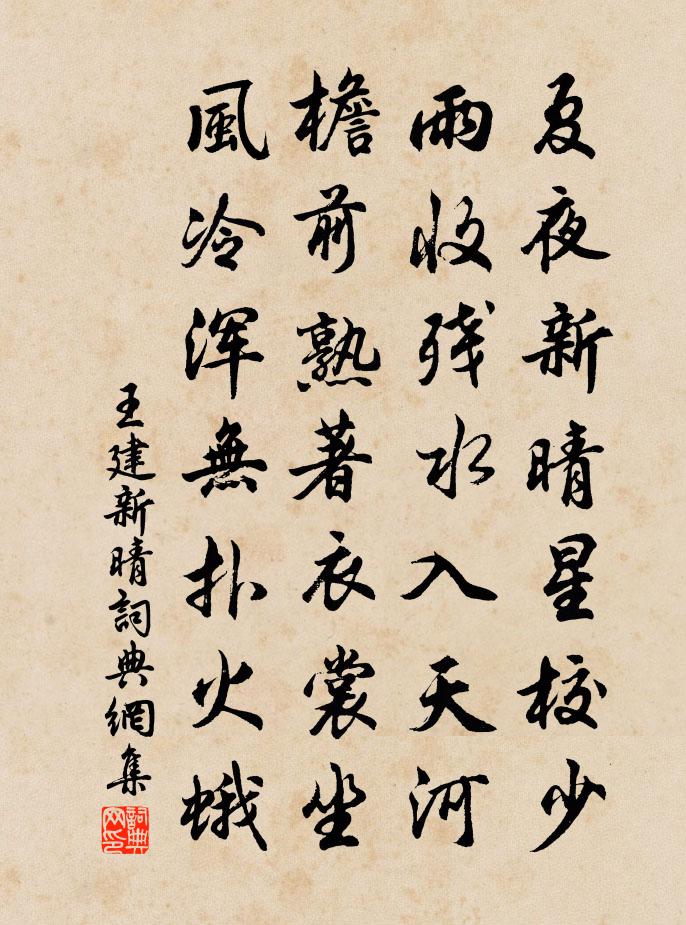 夏夜新晴星校少
雨收残水入天河
檐前熟著衣裳坐
風冷浑無扑火蛾
王建新晴詞典網集
詞典網印